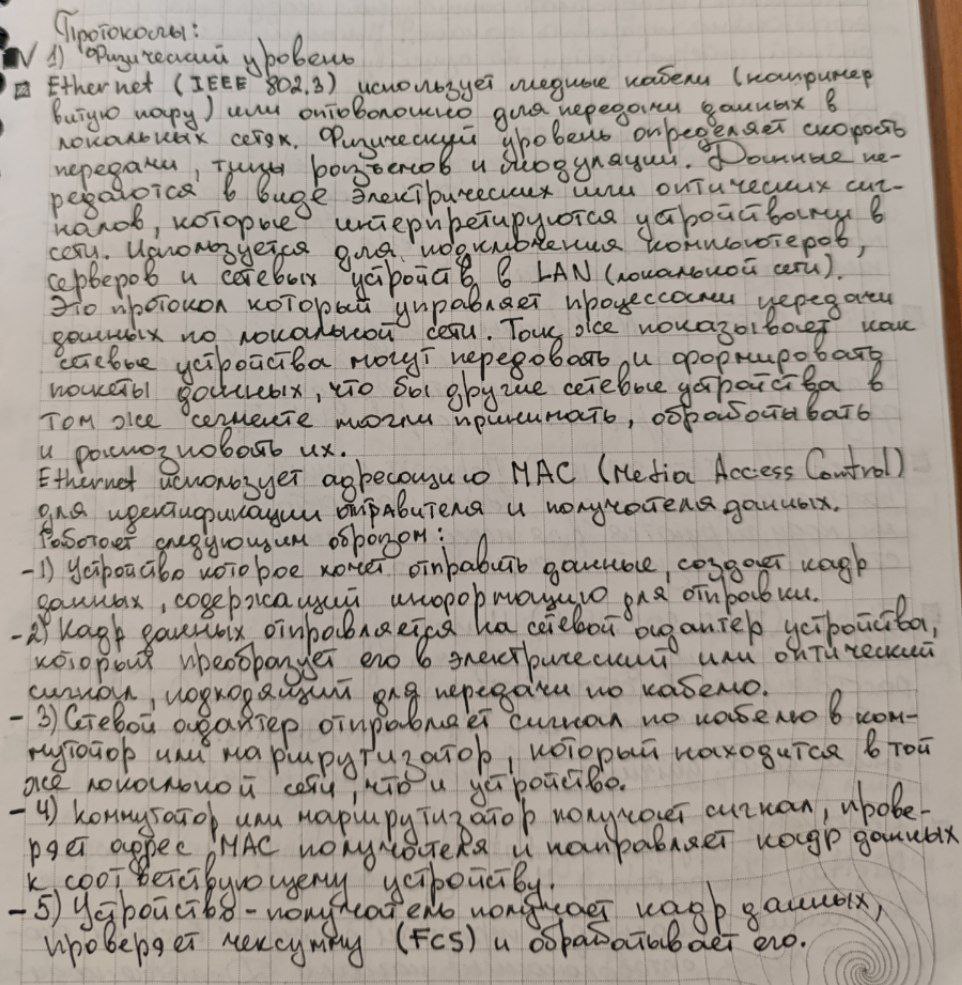 Протоколы:
√ 1) Физический уровень
Ethernet (IEEE 802.3) использует медные кабели (например
витую пару) или оптоволокно для передачи данных в
локальных сетях. Физический уровень определяет скорость
передачи, типы разъемов и модуляции. Данные пе-
редаются в виде электрических или оптических сиг-
налов, которые интерпретируются устройствами в
сети. Используется для подключения компьютеров,
серверов и сетевых устройств в LAN (локальной сети).
Это протокол который управляет процессами передачи
данных по локальной сети. Так же показывает как
сетевые устройства могут передовать и формировать
пакеты данных, что бы другие сетевые устройства в
том же сегменте могли принимать, обработывать
и распозновать их.
Ethernet использует адресацию MAC (Media Access Control)
для идентификации отправителя и получателя данных.
Работает следующим образом:
- 1) Устройство которое хочет отправить данные, создает кадр
данных, содержащий информацию для отправки.
- 2) Кадр данных отправляется на сетевой адаптер устройства,
который преобразует его в электрический или оптический
сигнал, подходящий для передачи по кабелю.
- 3) Сетевой адаптер отправляет сигнал по кабелю в ком-
мутатор или маршрутизатор, который находится в той
же локальной сети, что и устройство.
- 4) Коммутатор или маршрутизатор получает сигнал, прове-
ряет адрес MAC получателя и направляет кадр данных
к соответствующему устройству.
- 5) Устройство-получатель получает кадр данных,
проверяет чексумму (FCS) и обрабатывает его.